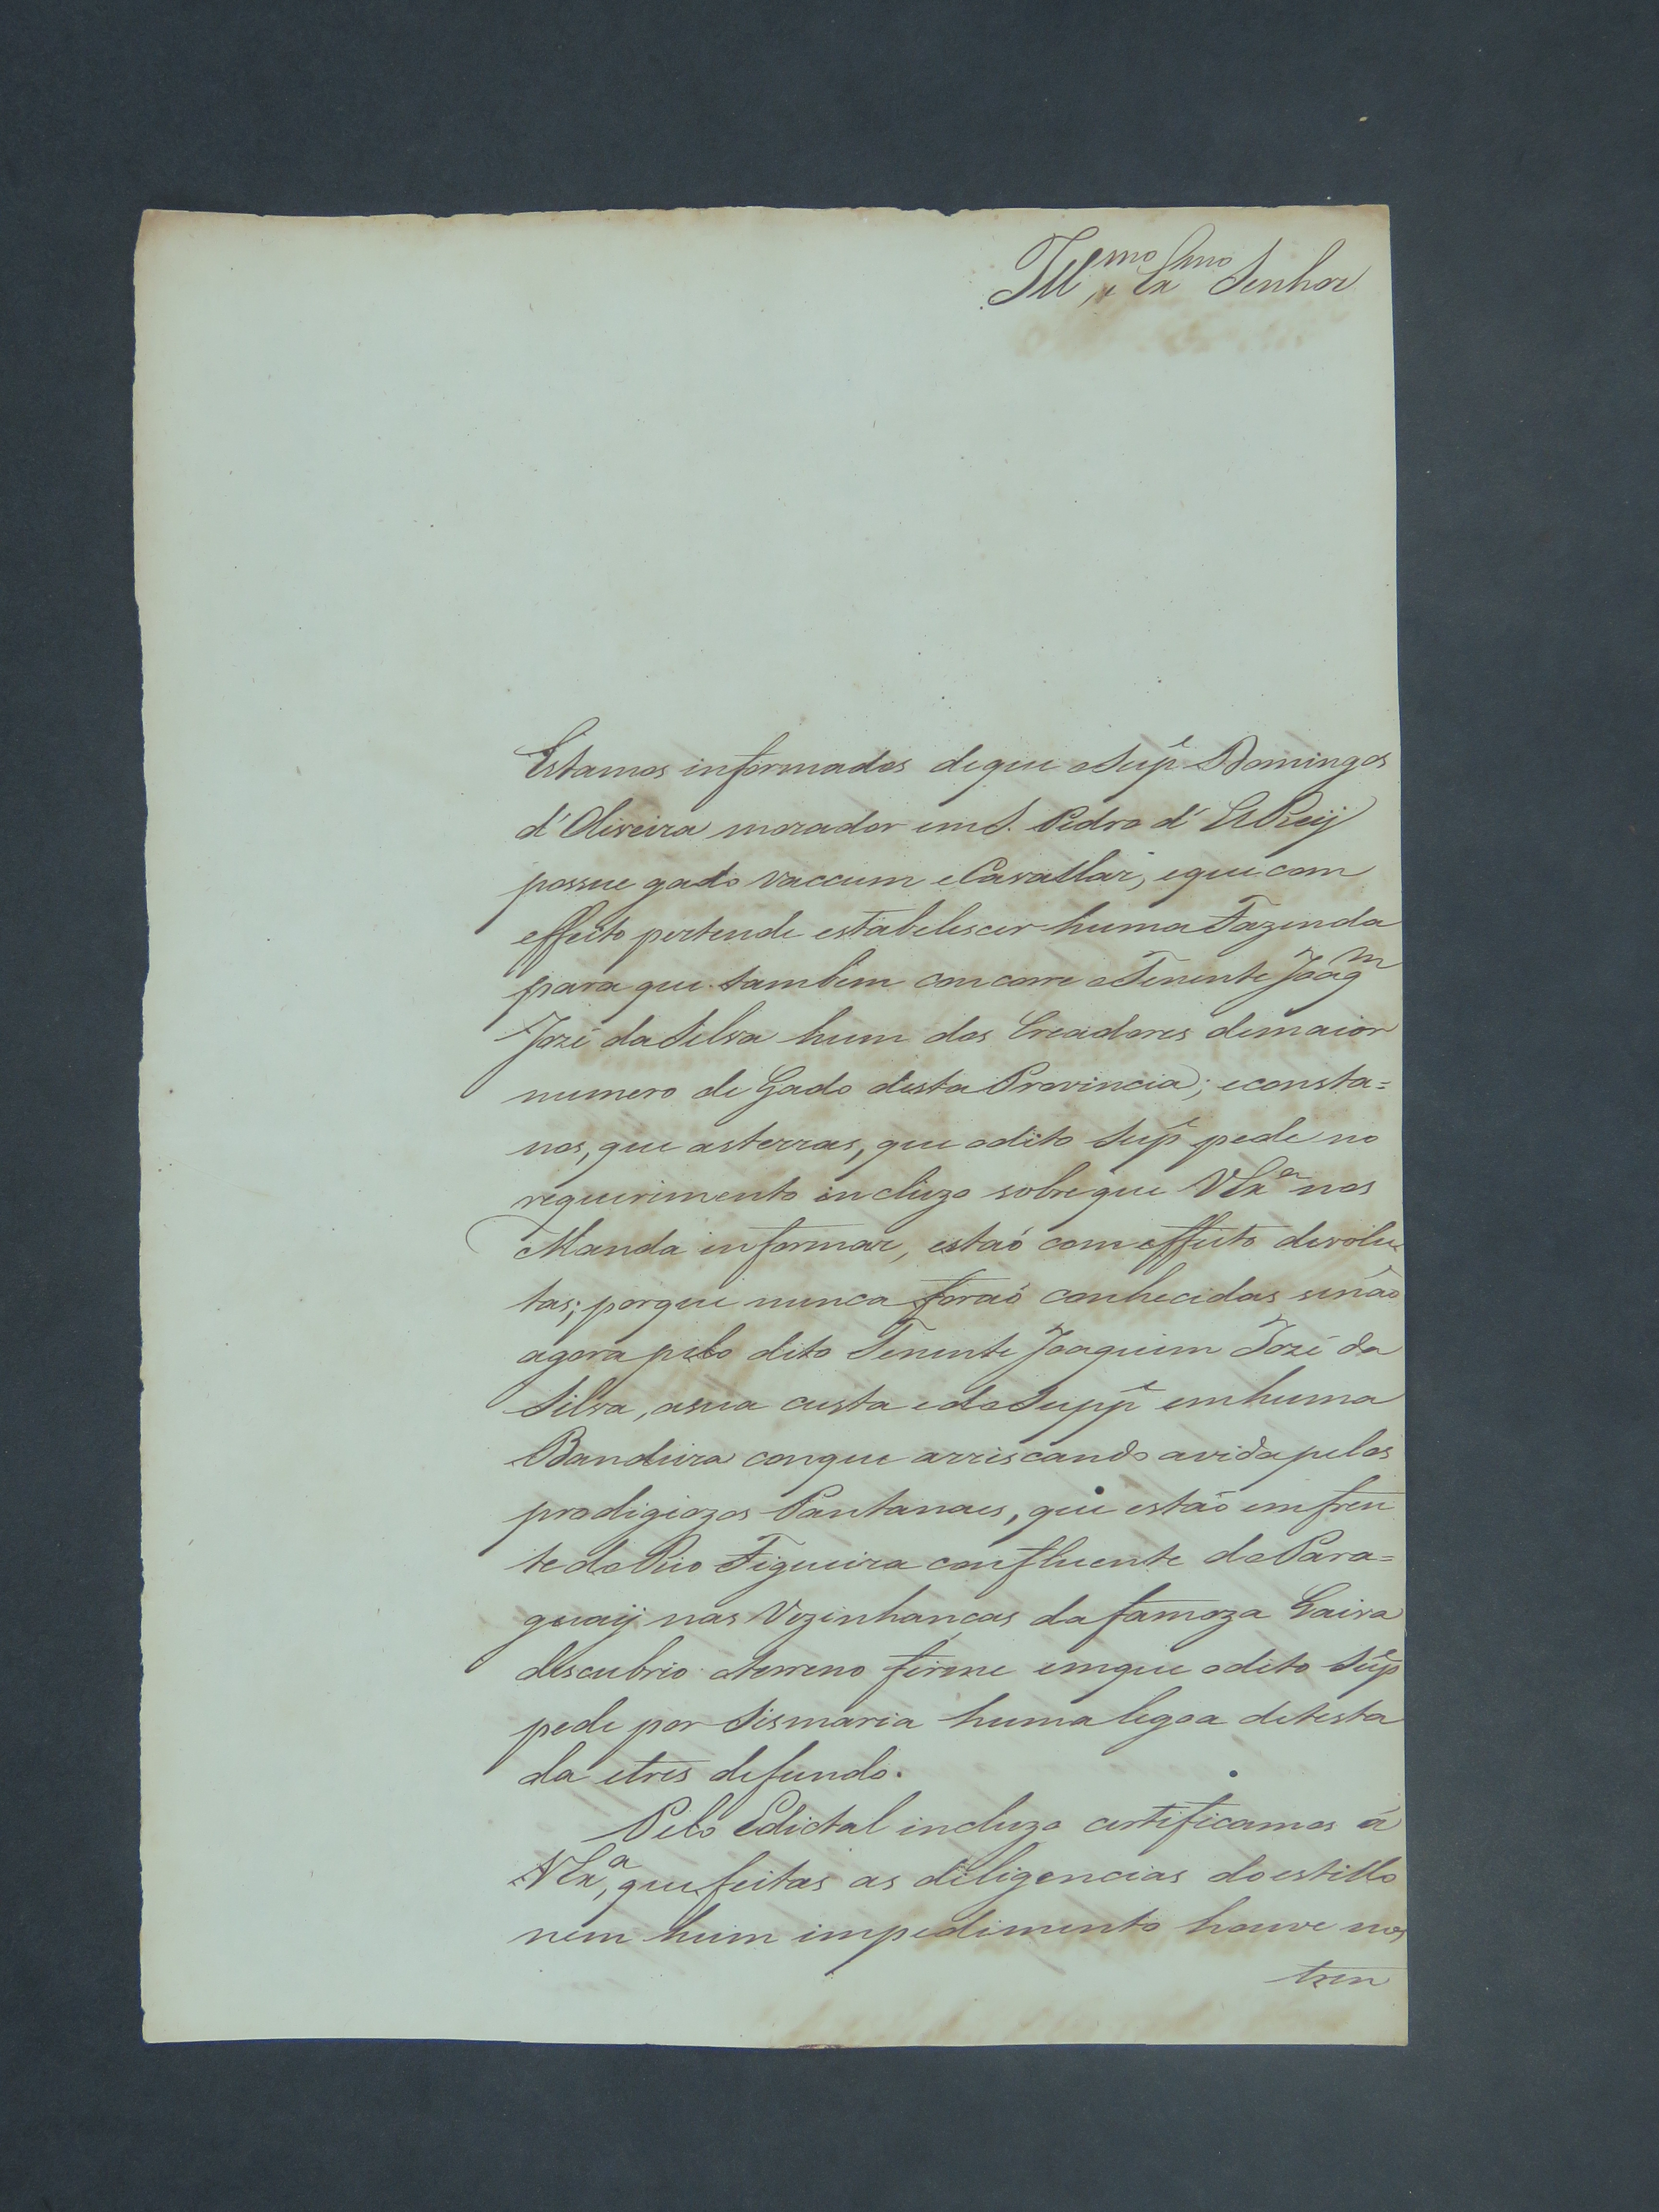 Ill^mo, e Ex^mo Senhor
Estamos informados deque o Sup^e Domingos
d'Oliveira morador em S. Pedro d'ElReÿ
possue gado vaccum e Cavallar, eque com
effeito pertende estabelescer huma Fazenda
para que tambem concorre o Tenente Joaq^m
Jozé da Silva hum dos Creadores demaior
numero de Gado desta Provincia; econsta=
nos, que asterras, que odito Sup^e pede no
requerimento incluzo sobreque VEx^a nos
Manda informar, estaó com effeito devolu
tas; porque nunca foraó conhecidas senaó
agora pelo dito Tenente Joaquim Jozé da
Silva, asua custa edo Supp^e emhuma
Bandeira conque arriscando avida pelos
prodigiozos Pantanaes, que estão emfren
te do Rio Figueira confluente do Para=
guaÿ nas Vezinhancas da famoza Gaiva
descubrio oterreno firme emque odito Sup^e
pede por Sismaria huma legoa detesta
da etres defundo.
Pelo Edictal incluzo certificamos á
VEx^a, que feitas as diligencias do estillo
nem hum impedimento houve nos
tren